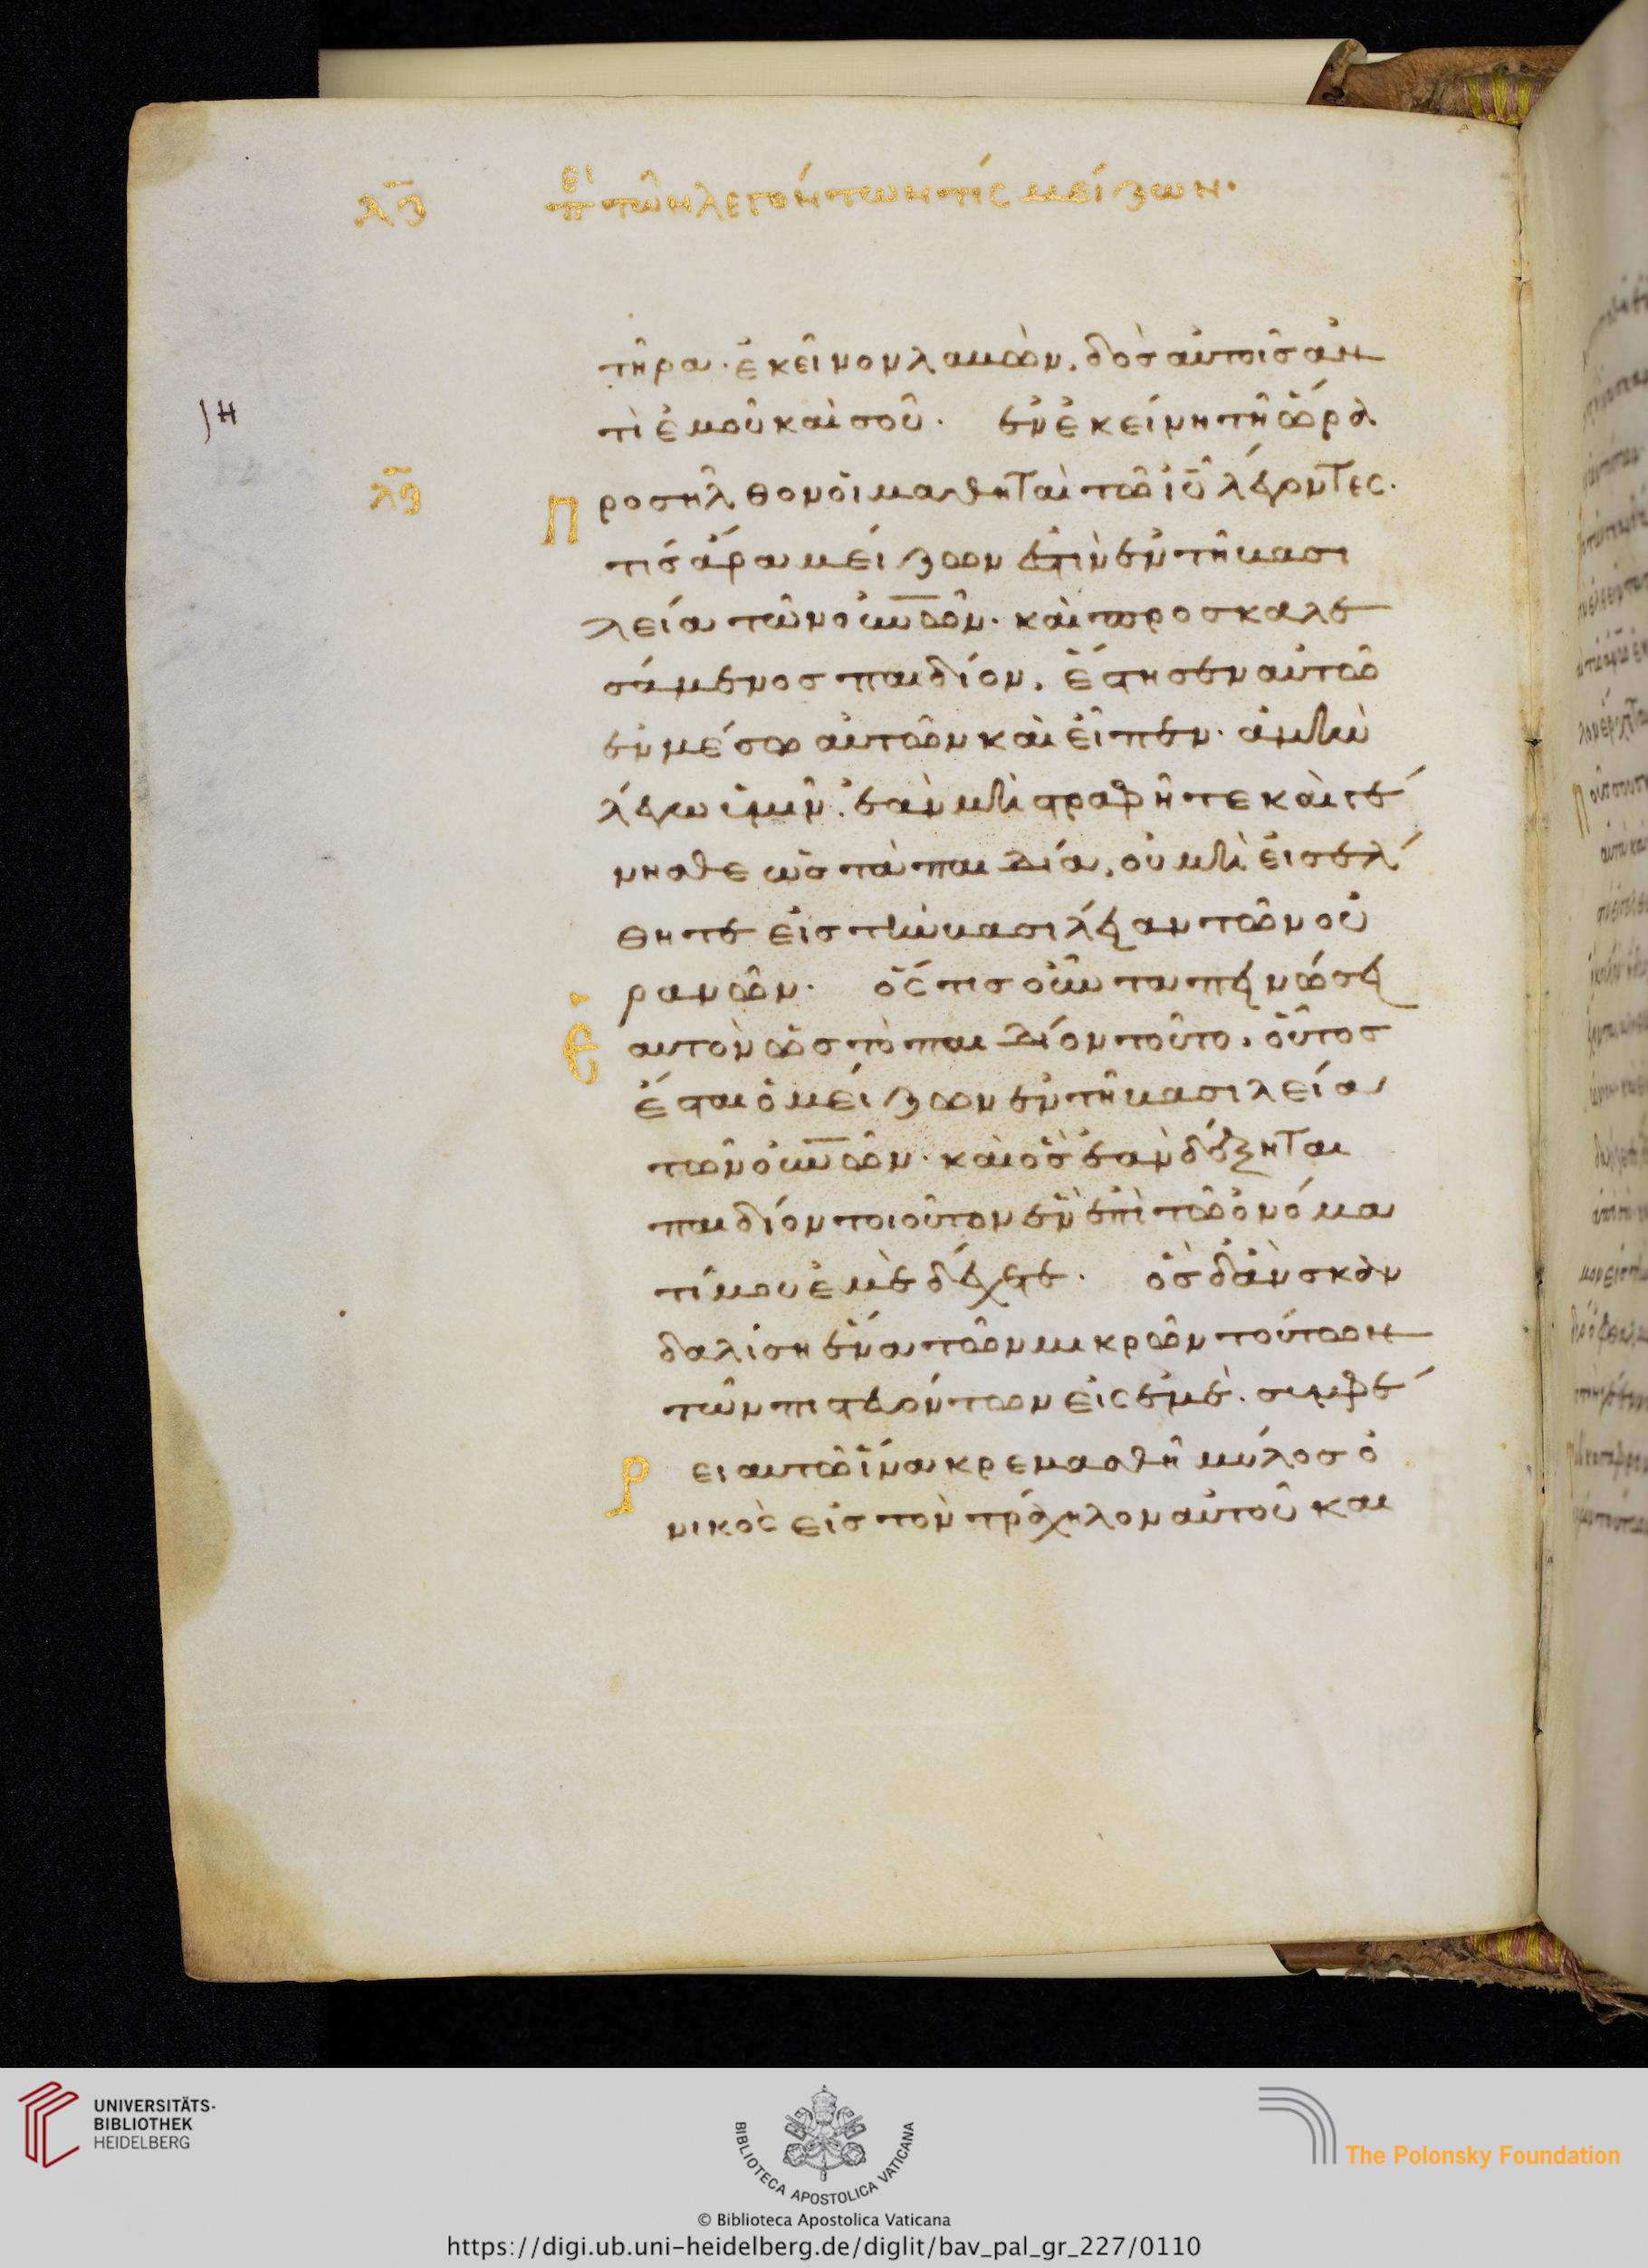 λθ
περὶ τῶν λεγόντων τίς μείζων·
τῆρα· ἐκεῖνον λαβὼν, δὸς αὐτοῖς ἀν
τὶ ἐμοῦ καὶ σοῦ· ἐν ἐκείνη τῆ ὥρα
ιη
λθ
Προσῆλθον οἱ μαθηταὶ τῶ ἰῦ λέγοντες·
τίς ἄρα μείζων ἐστὶν ἐν τῆ βασι
λεία τῶν οὐνῶν· καὶ προσκαλε
σάμενος παιδίον, ἔστησεν αὐτὸ
ἐν μέσω αὐτῶν καὶ εἶπεν· ἀμὴν
λέγω ὑμῖν· ἐὰν μὴ στραφῆτε καὶ γέ
νησθε ὡς τὰ παιδία, οὐ μὴ εἰσέλ
θητε εἰς τὴν βασιλείαν τῶν οὐ
ρανῶν· ὅστις οὖν ταπεινώσει
Ἑαυτὸν ὡς τὸ παιδίον τοῦτο, οὗτος
ἔσται ὁ μείζων ἐν τῆ βασιλεία
τῶν οὐνῶν· καὶ ὃς ἐὰν δέξηται
παιδίον τοιοῦτον ἓν ἐπὶ τῶ ὀνόμα
τί μου ἐμὲ δέχεται· ὃς δ' ἂν σκαν
δαλίση ἕνα τῶν μικρῶν τούτων
τῶν πιστευόντων εἰς ἐμὲ· συμφέ
Ρει αὐτῶ ἵνα κρεμασθῆ μύλος ὀ
νικὸς εἰς τὸν τράχηλον αὐτοῦ και
UNIVERSITÄTS-
BIBLIOTHEK
HEIDELBERG
BIBLIOTECA APOSTOLICA VATICANA
The Polonsky Foundation
© Biblioteca Apostolica Vaticana
https://digi.ub.uni-heidelberg.de/diglit/bav_pal_gr_227/0110